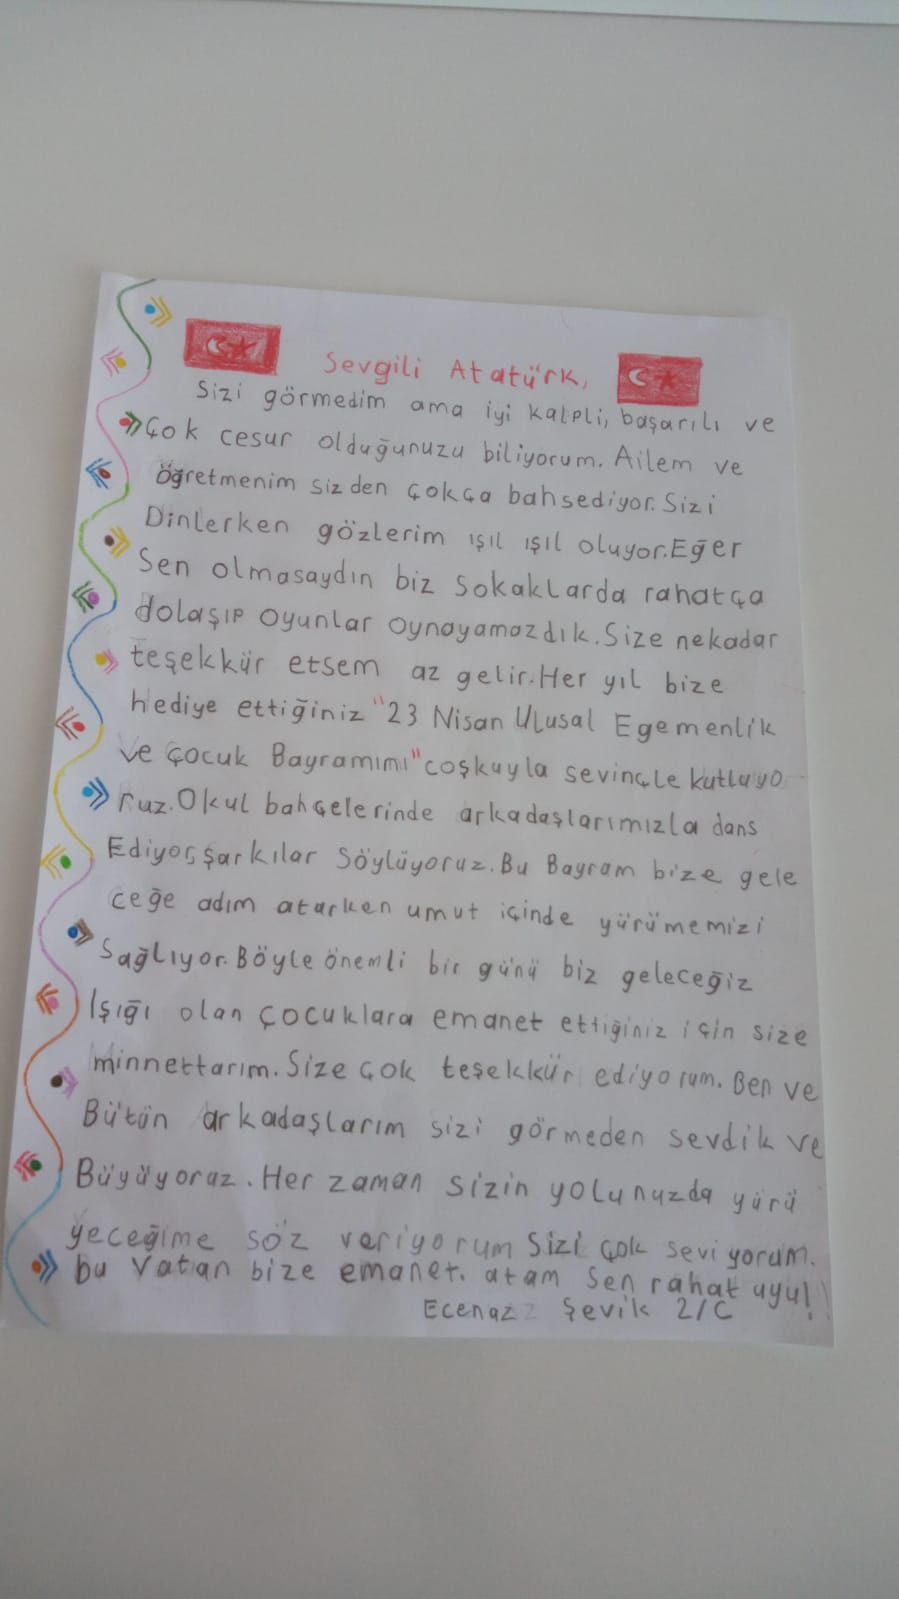 Sevgili Atatürk,
Sizi görmedim ama iyi kalpli, başarılı ve
Çok cesur olduğunuzu biliyorum. Ailem ve
öğretmenim sizden çokça bahsediyor. Sizi
Dinlerken gözlerim ışıl ışıl oluyor. Eğer
Sen olmasaydın biz sokaklarda rahatça
dolaşıp oyunlar oynayamazdık. Size nekadar
teşekkür etsem az gelir. Her yıl bize
hediye ettiğiniz "23 Nisan Ulusal Egemenlik
ve Çocuk Bayramını" coşkuyla sevinçle kutluyo
ruz. Okul bahçelerinde arkadaşlarımızla dans
Ediyor, şarkılar söylüyoruz. Bu Bayram bize gele
ceğe adım atarken umut içinde yürümemizi
Sağlıyor. Böyle önemli bir günü biz geleceğiz
Işığı olan çocuklara emanet ettiğiniz için size
minnettarım. Size çok teşekkür ediyorum. Ben ve
Bütün arkadaşlarım sizi görmeden sevdik ve
Büyüyoraz. Her zaman sizin yolunuzda yürü
yeceğime söz veriyorum Sizi çok seviyorum.
bu Vatan bize emanet. atam Sen rahat uyu!
Ecenaz Şevik 2/C